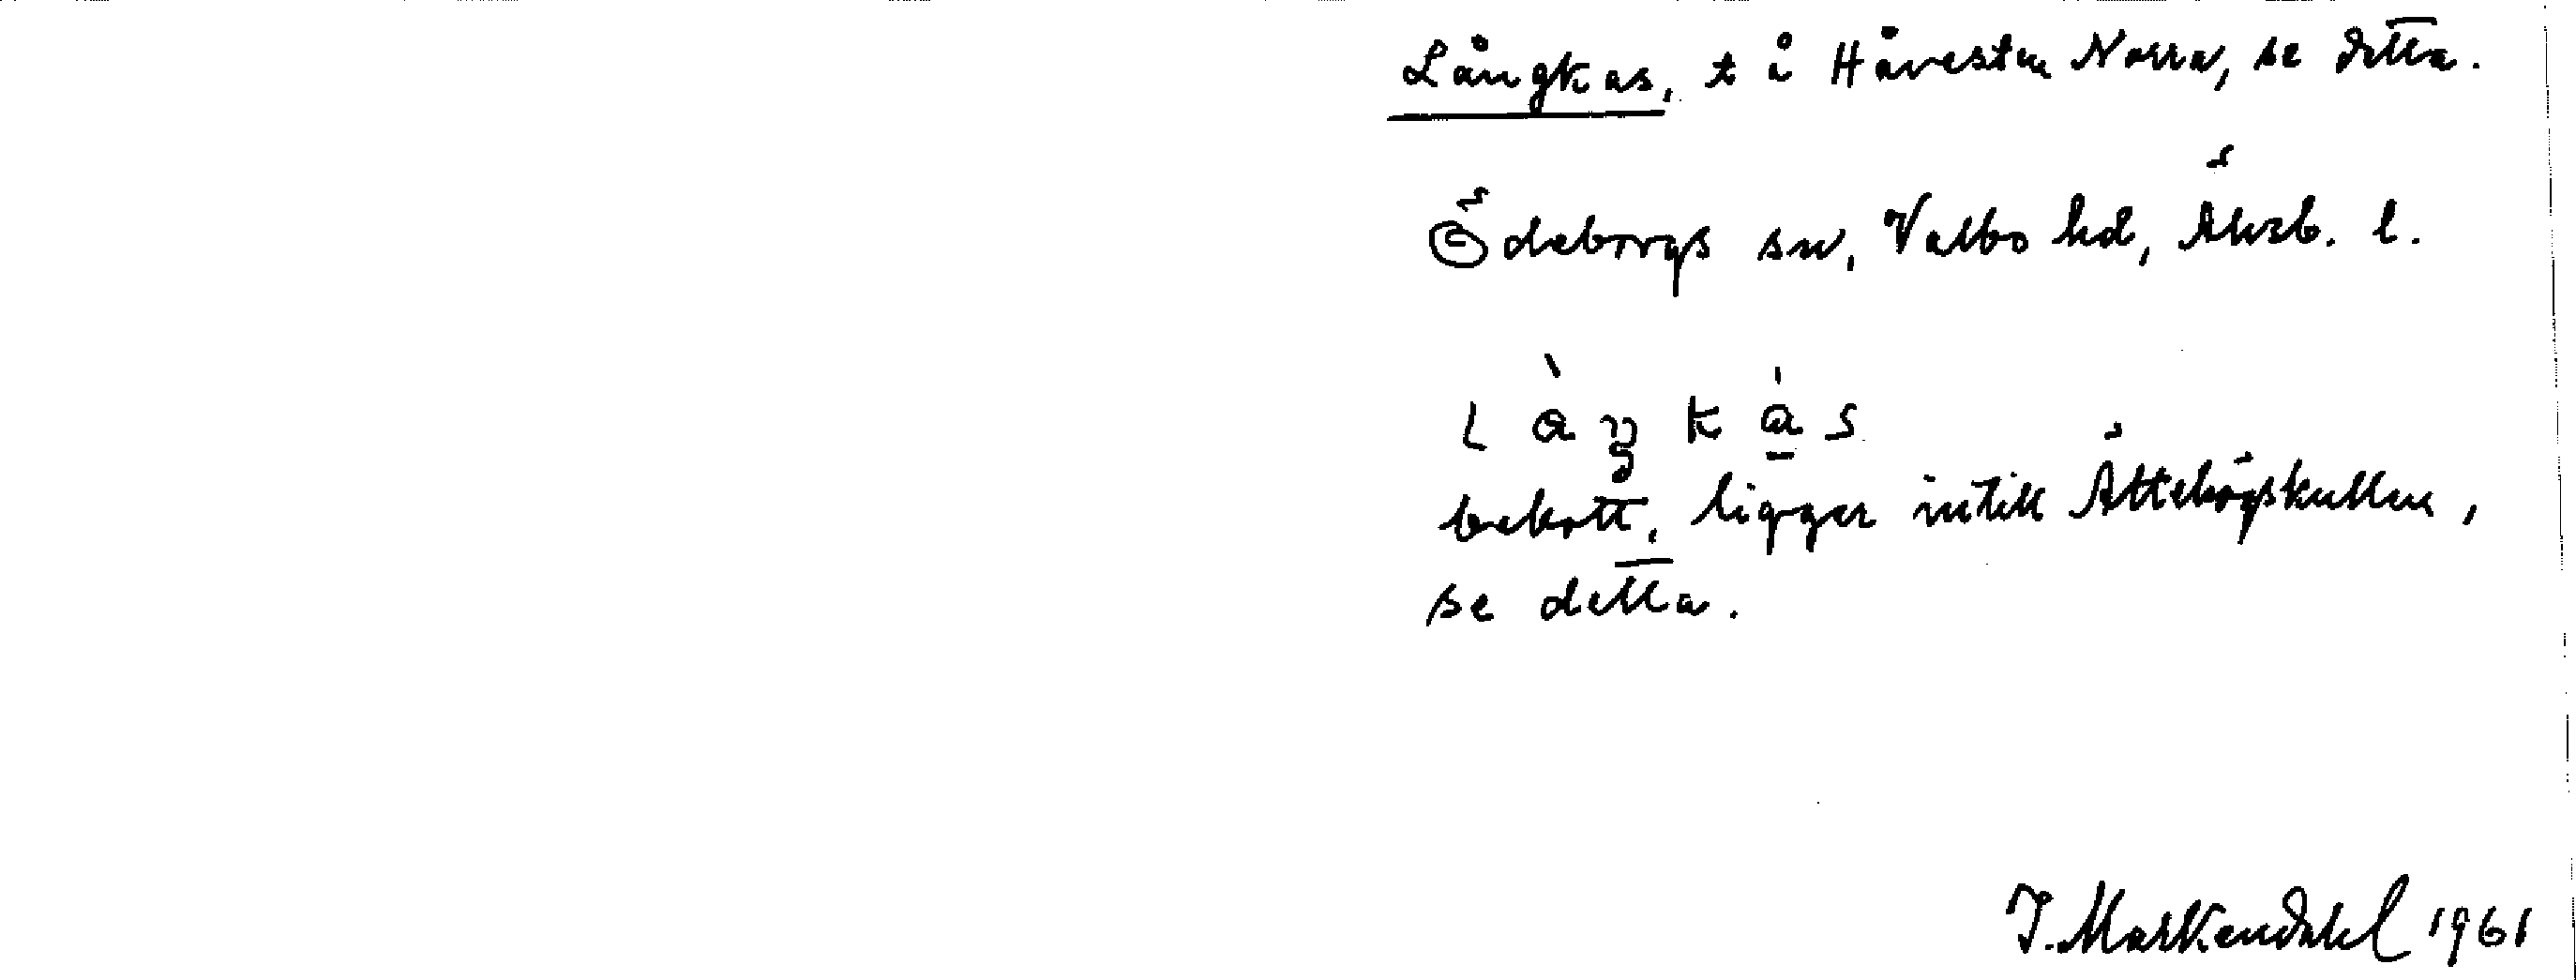 Långkas, t å Håvesten Norra, se detta.
Ödeborgs sn, Valbo hd, Älvsb. l.
làŋkàs
ligger intill Åttehögskullen,
se detta.
J. Markendahl 1961